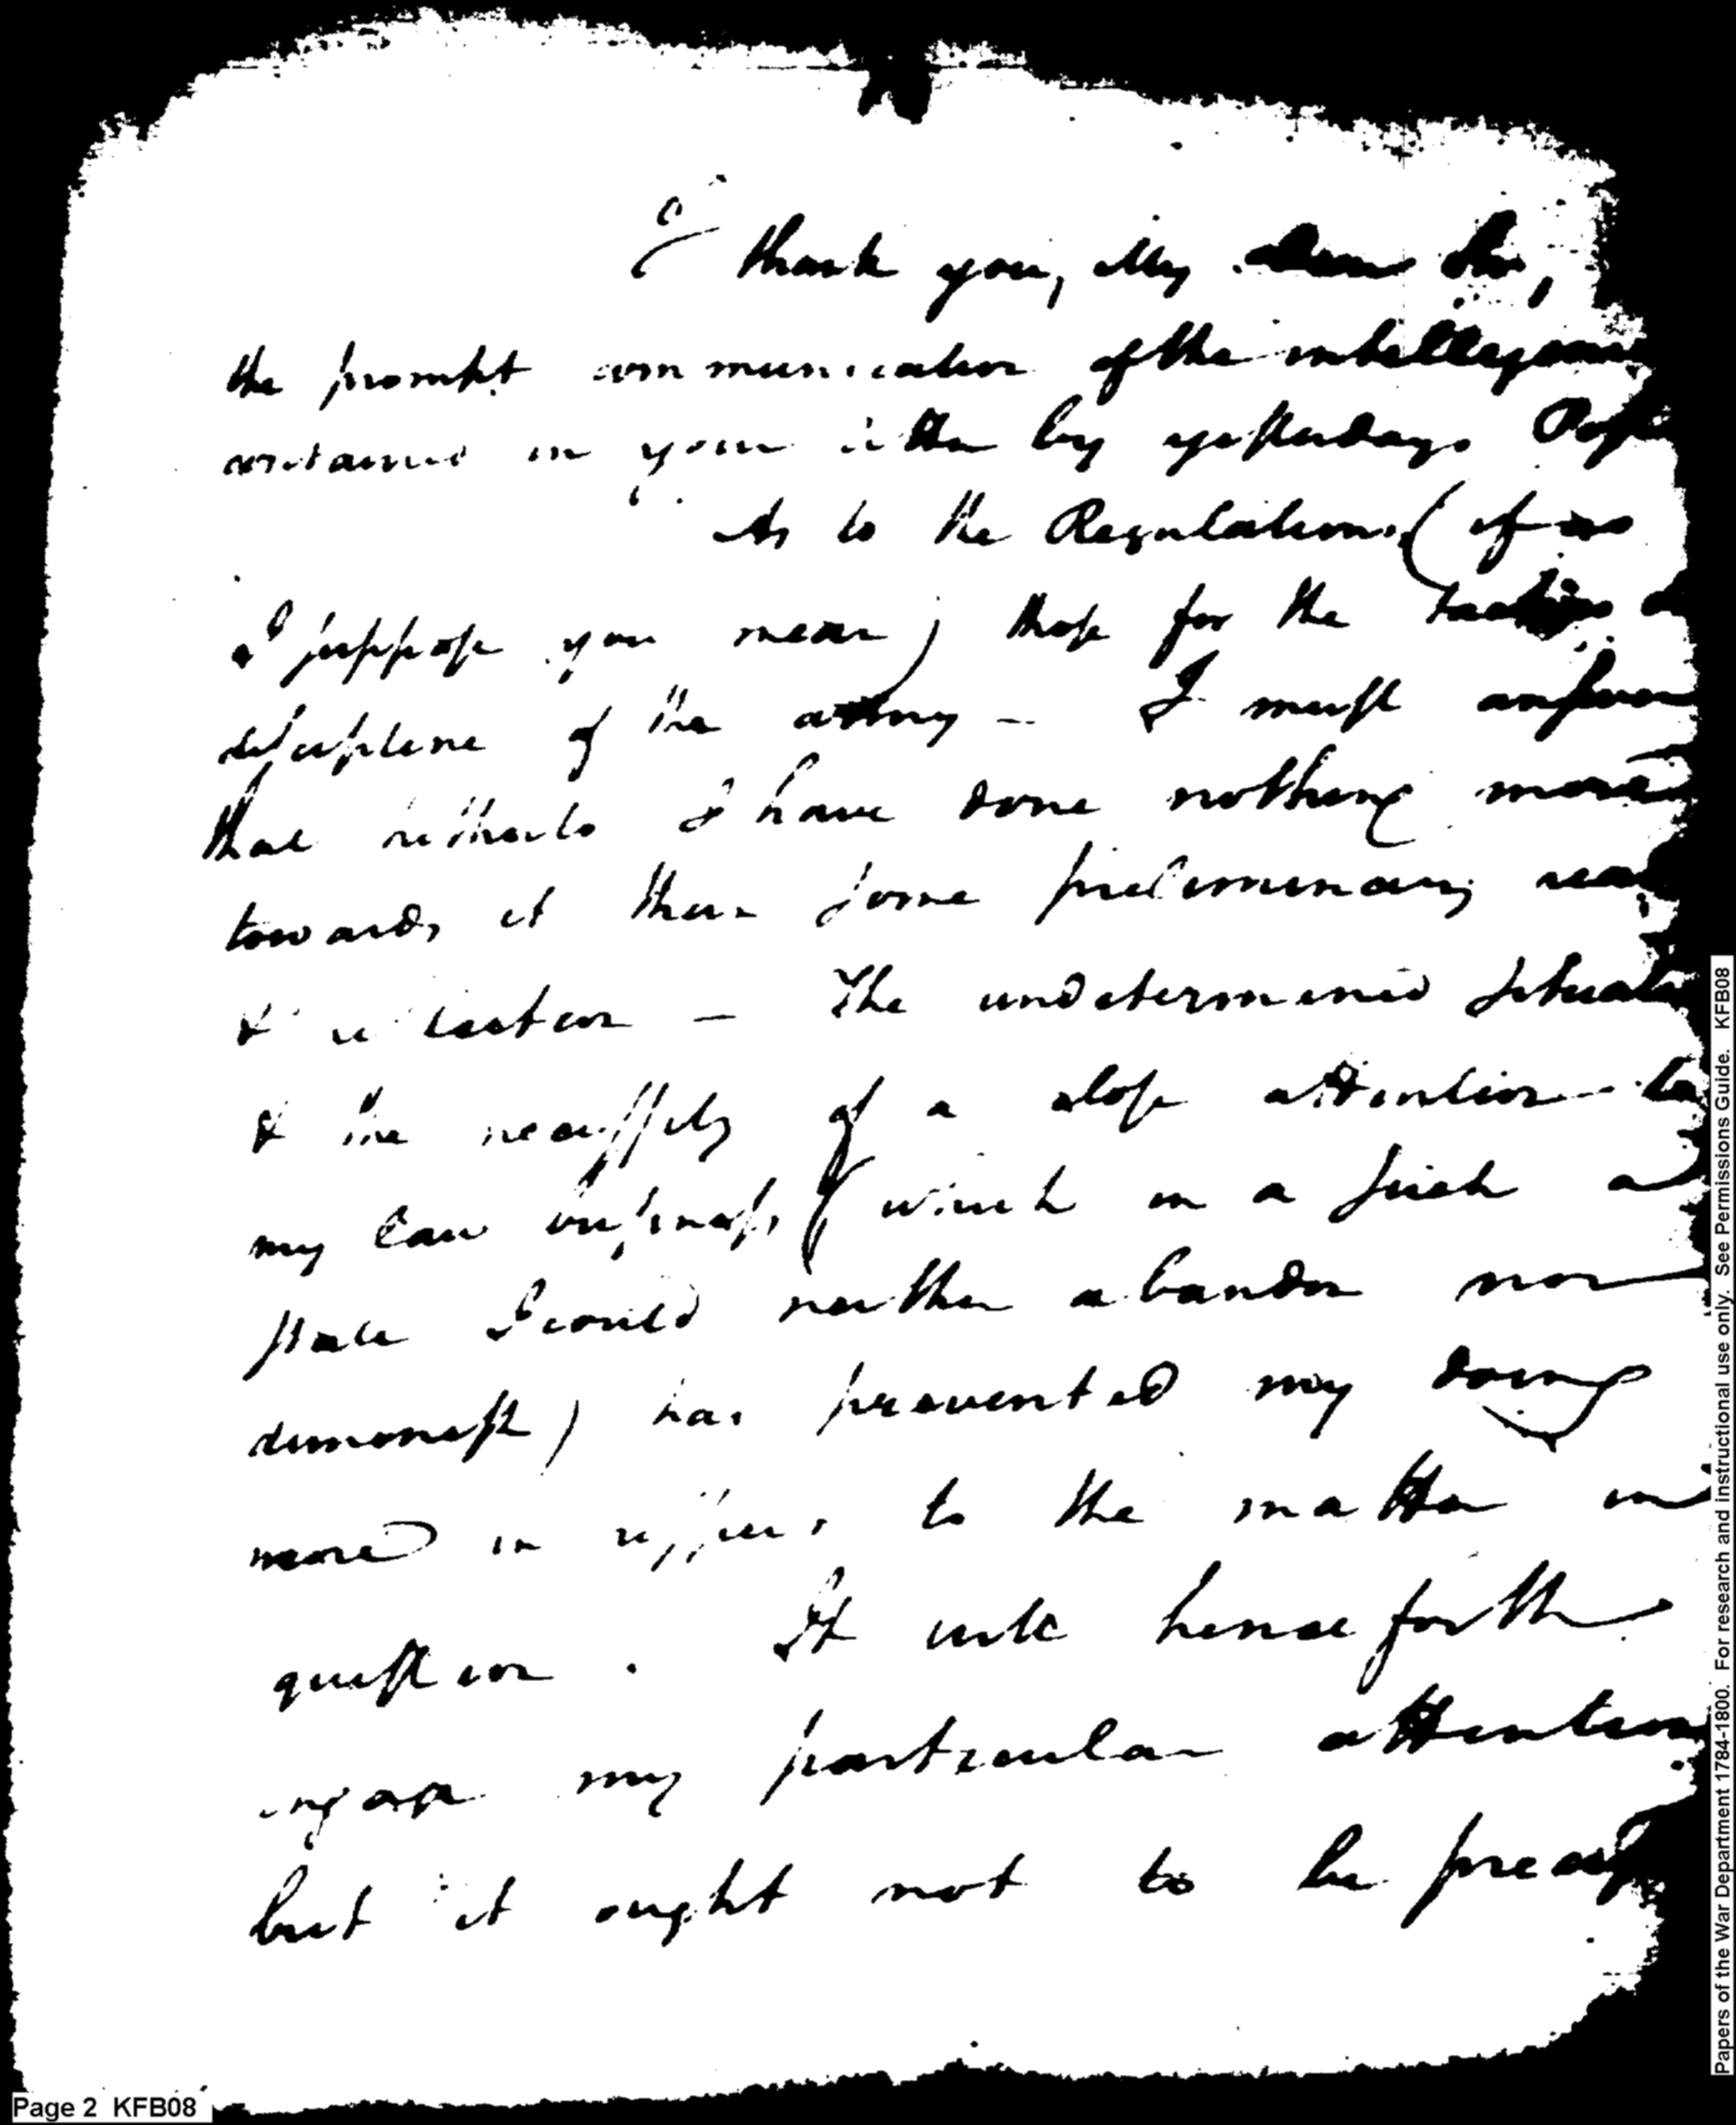 I thank you, My Dear Sir,
the prompt communication of the intelligence
contained in your letter by yesterdays
As to the Regulations (if so
I suppose you mean) those for the tactics
discipline of the army — I must confess
that hitherto I have done nothing more
towards it than some preliminary
& — The undetermined situati
& the necessity of a close attention to
my law business (which in a such a
state I could neither abandon nor
dimmish) has prevented my doing
more in respect to the matter in
question. It will henceforth
engage my particular attention
but it ought not to be precip
Page 2 KFB08
Papers of the War Department 1784-1800. For research and instructional use only. See Permissions Guide. KFB08